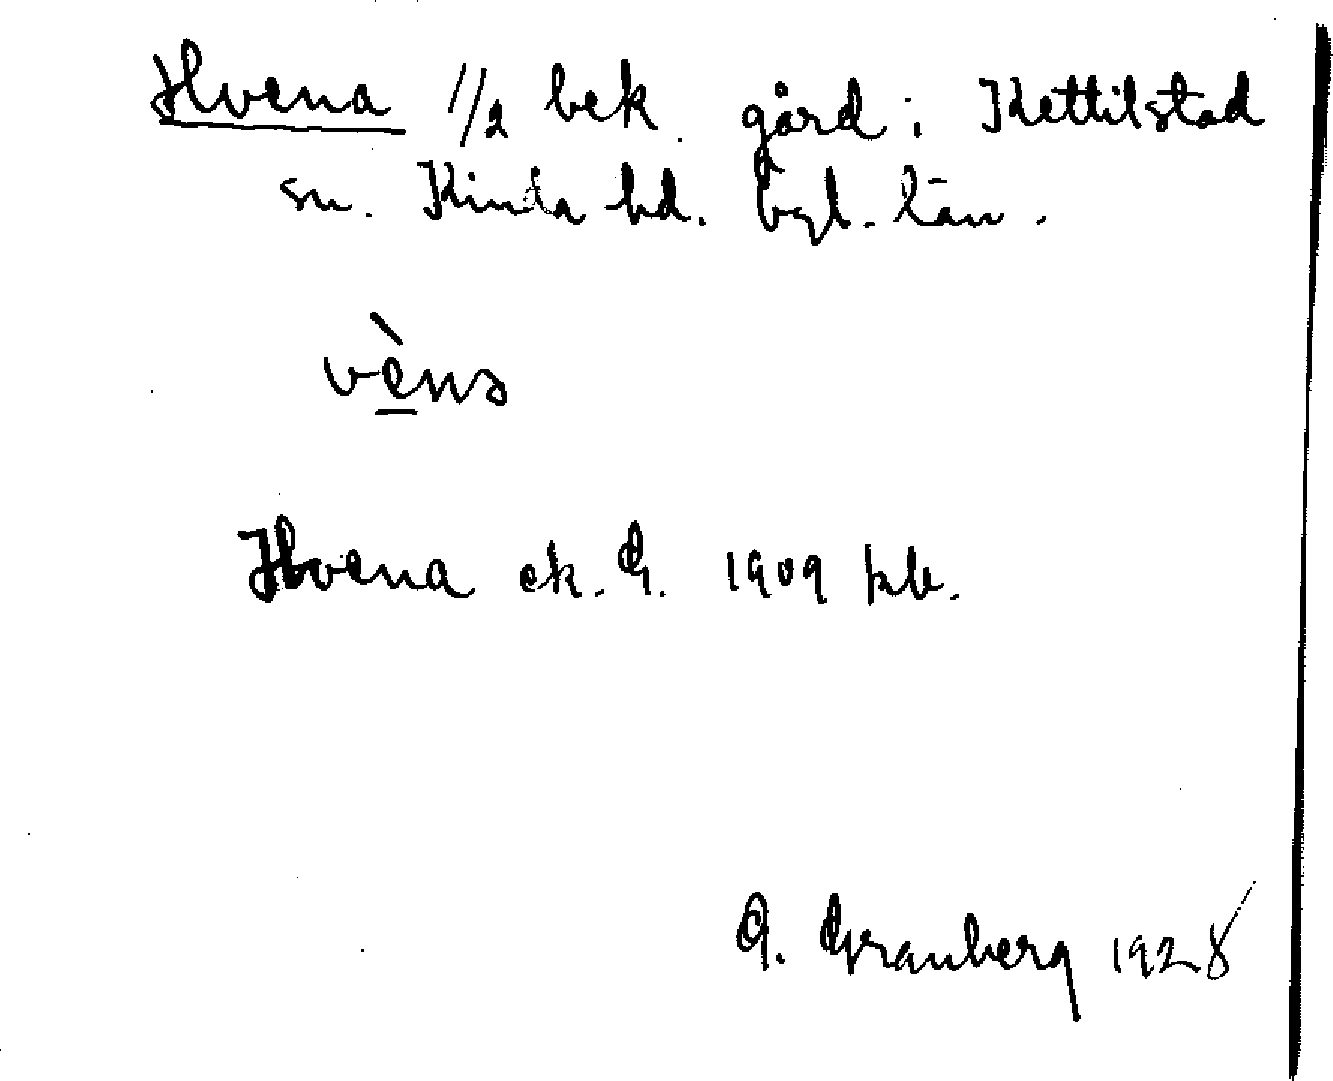 Hvena 1/2 bek. gård i Kettilstad
sn. Kinda hd. Ögl. län.
vènə
Hvena ek. G. 1909 kb.
G. Granberg 1928